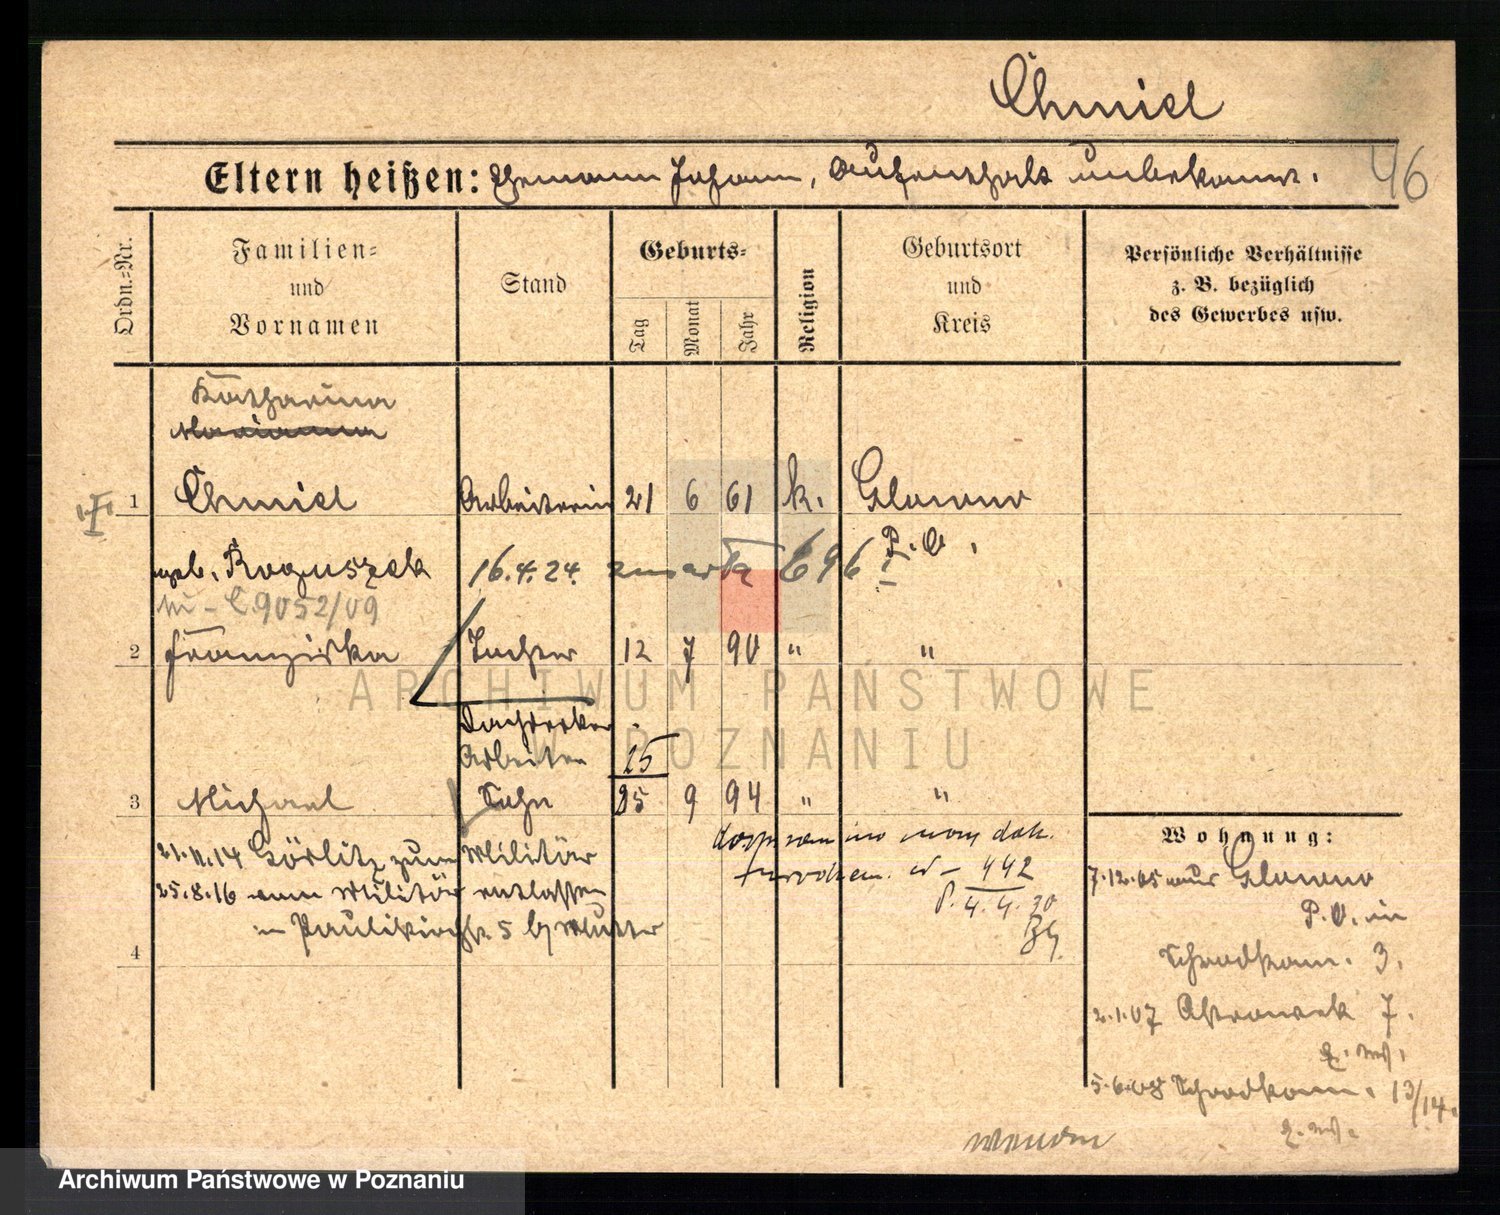 Chmiel
46
Eltern heißen: Ehemann Johann, Aufenthalt unbekannt.
Ordn.=Nr.
Familien=
und
Vornamen
Stand
Geburts=
Tag
Monat
Jahr
Religion
Geburtsort
und
Kreis
Persönliche Verhältnisse
z. B. bezüglich
des Gewerbes usw.
Katharina
Marianna
1 Chmiel Arbeiterin 21 6 61 k. Glowno
P. O.
geb. Roguszak 16.4.24. zmarła 696
C.9052/09
2 Franziska Tochter 12 7 90 " "
Dachdecker
Arbeiter 15
3 Michael Sohn 25 9 94 " "
21.11.14 Görlitz zum Militär
25.8.16 vom Militär entlassen
in Paulikirchstr. 5 bei Mutter
4
dok.
442
4.4.30
Wohnung:
7.12.05 aus Glowno
P. O. in
Schrodkam. 3.
2.1.07 Ostrowek 7.
5.6.08 Schrodkam. 13/14.
wenden
ARCHIWUM PAŃSTWOWE
W POZNANIU
Archiwum Państwowe w Poznaniu